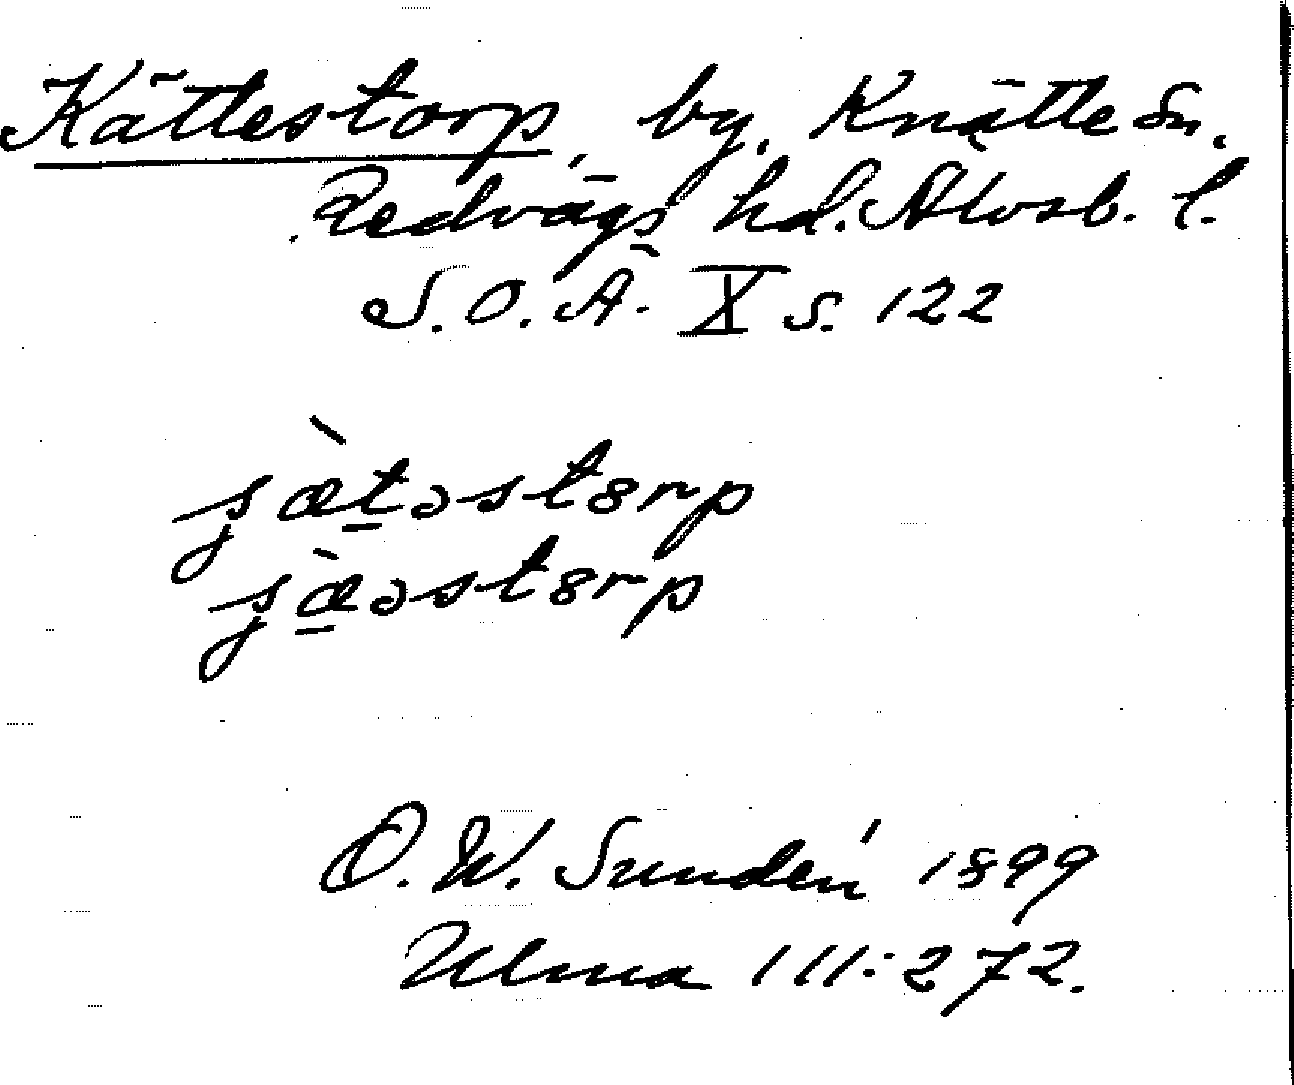 Kättestorp, by, Knätte sn.
Redvägs hd. Älvsb. l.
S.O.Ä. X s. 122
ʒæ̀təstɵrp
ʒæ̀əstɵrp
D. W. Sundén 1899
Ulma 111:272.